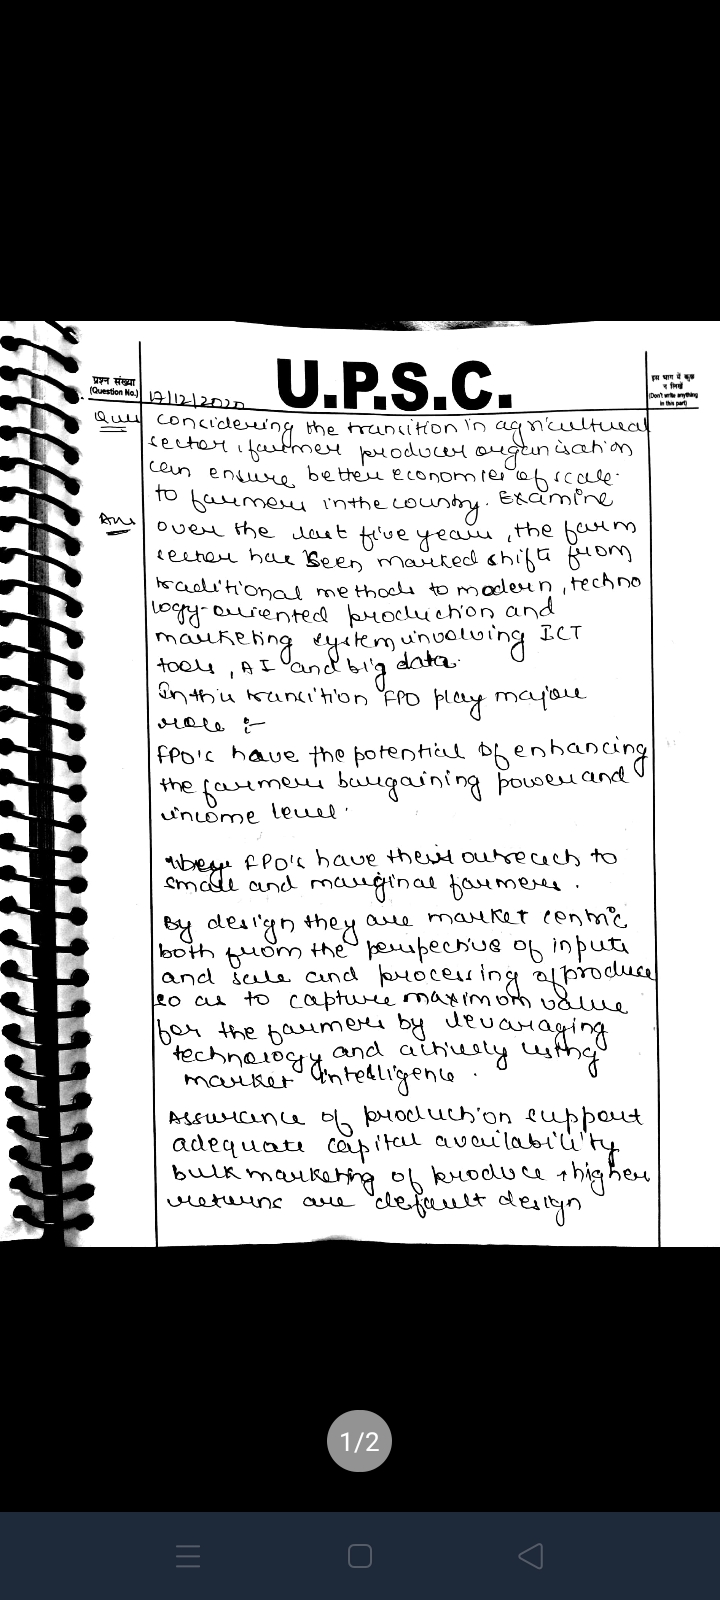 U.P.S.C.
प्रश्न संख्या
(Question No.)
इस भाग में कुछ
न लिखें
(Don't write anything
in this part)
17/12/2020
Ques
Considering the transition in agricultural
sector, farmer producer organisation
can ensure better economies of scale
to farmers in the country. Examine
Ans
over the last five years, the farm
sector has seen marked shift from
traditional methods to modern, techno
logy-oriented production and
marketing system involving ICT
tools, AI and big data.
In this transition FPO play major
role :-
FPO's have the potential of enhancing
the farmers bargaining power and
income level.
FPO's have their outreach to
small and marginal farmers.
By design they are market centric
both from the perspective of inputs
and sale and processing of produce
so as to capture maximum value
for the farmers by levaraging
technology and actively using
market intelligence.
Assurance of production support
adequate capital availability
bulk marketing of produce + higher
returns are default design
1/2